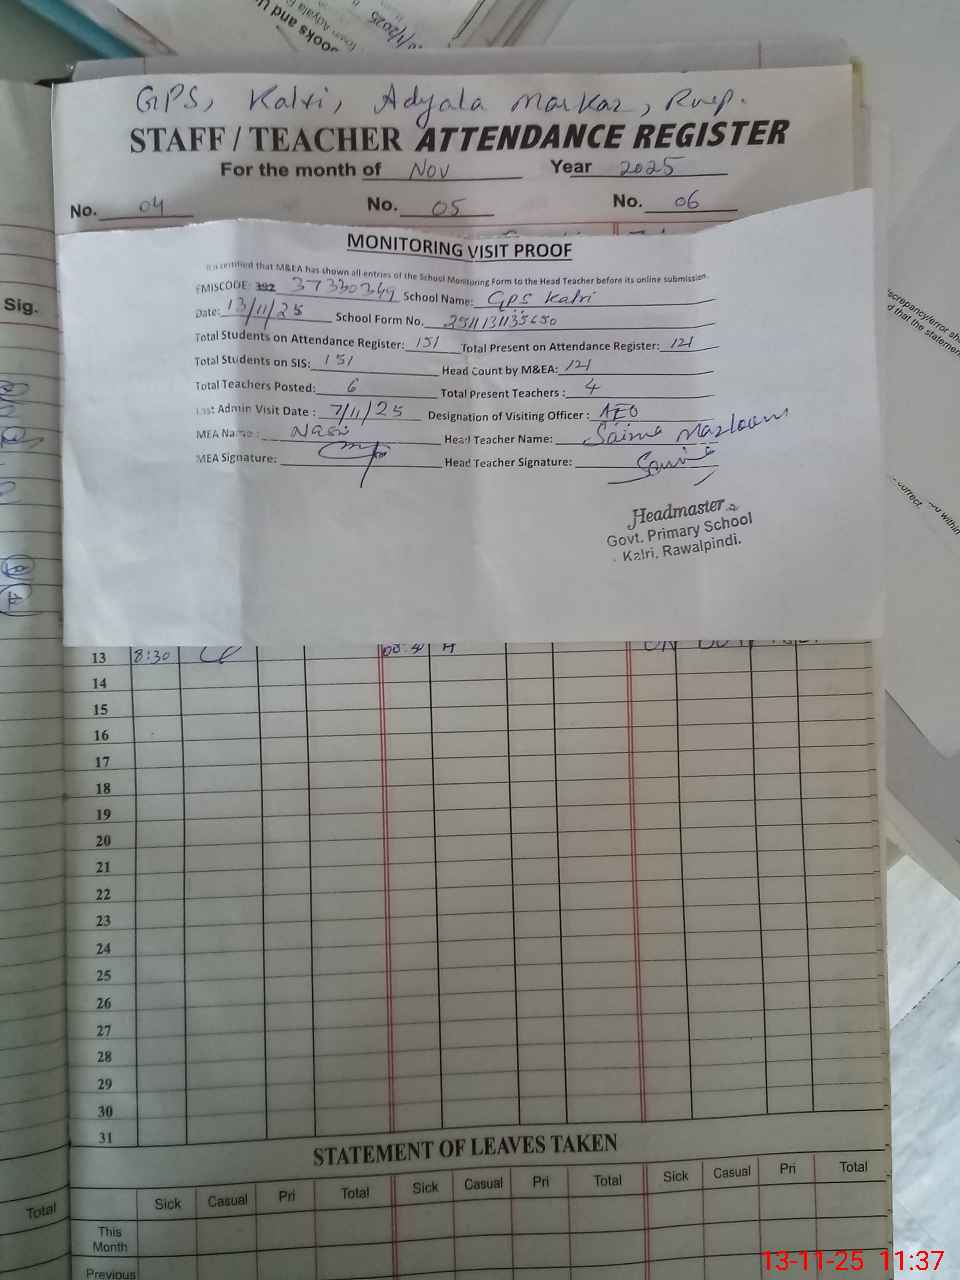 ooks and
GPS, Kalri, Adyala Markaz, Rwp.
STAFF / TEACHER ATTENDANCE REGISTER
For the month of Nov Year 2025
No. 04 No. 05 No. 06
MONITORING VISIT PROOF
It is certified that M&EA has shown all entries of the School Monitoring Form to the Head Teacher before its online submission.
EMISCODE: 37330349 School Name: GPS Kalri
Date: 13/11/25 School Form No. 2511131135650
Total Students on Attendance Register: 151 Total Present on Attendance Register: 121
Total Students on SIS: 151 Head Count by M&EA: 121
Total Teachers Posted: 6 Total Present Teachers : 4
Last Admin Visit Date : 7/11/25 Designation of Visiting Officer : AEO
MEA Name : Nasir Head Teacher Name: Saima Mazloom
MEA Signature: Head Teacher Signature: Saima
Headmaster
Govt. Primary School
Kalri, Rawalpindi.
Sig.
13 8:30
14
15
16
17
18
19
20
21
22
23
24
25
26
27
28
29
30
31
STATEMENT OF LEAVES TAKEN
Sick Casual Pri Total Sick Casual Pri Total Sick Casual Pri Total
Total
This
Month
Previous
13-11-25 11:37